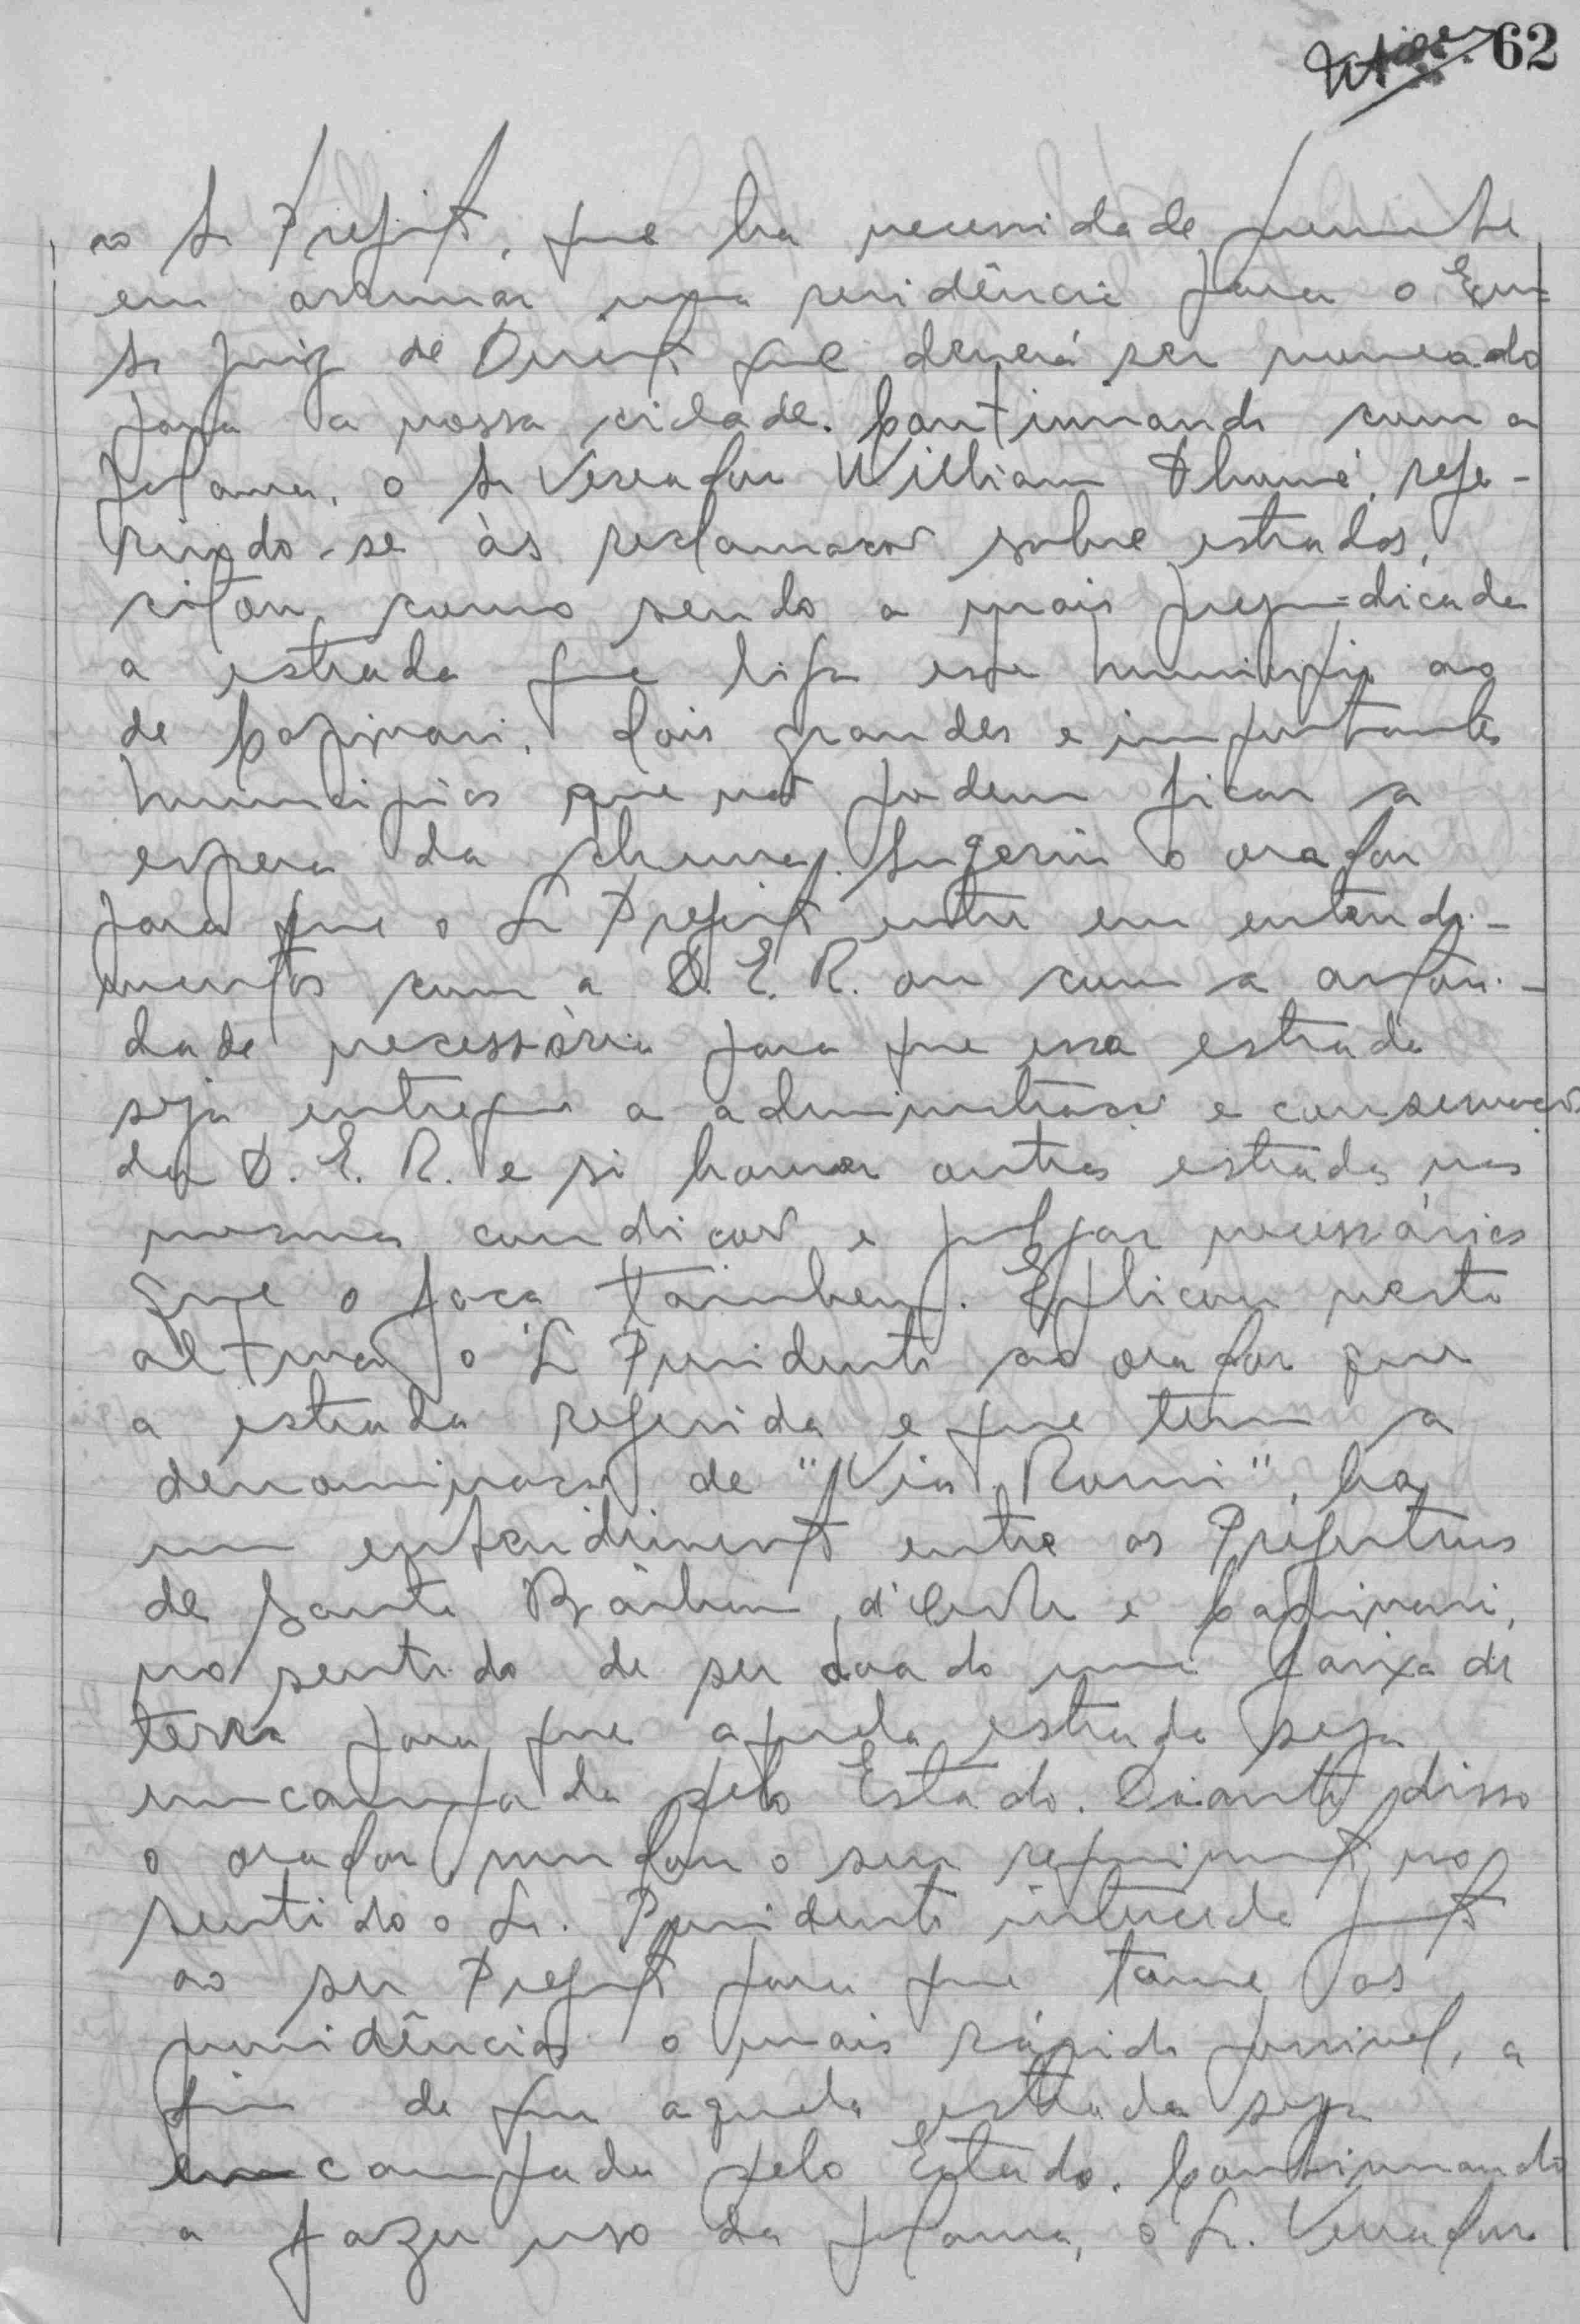 62
ao Sr Prefeito, que ha necessidade premente
em arrumar uma residência para o Exmº
Sr Juiz de Direito que deverá ser nomeado
para a nossa cidade. Continuando com a
palavra, o Sr Vereador William Dhumé, refe-
rindo-se às reclamações sobre estradas,
citou, como sendo a mais prejudicada
a estrada que liga este municipio ao
de Capivari, dois grandes e importantes
municipios que não podem ficar a
espera da chuva. Sugeriu o orador
para que o Sr Prefeito entre em entendi-
mentos com a D. E. R. ou com a autori-
dade necessária para que essa estrada
seja entregue a administração e conservação
da D. E. R. e si houver outras estradas nas
mesmas condições e julgar necessários
que o faça tambem. Explicou nesta
altura o Sr Presidente ao orador que
a estrada referida e que tem a
denominação de "Via Romi", ha
um entendimento entre as Prefeituras
de Santa Bárbara d'Oeste e Capivari,
no sentido de ser doado uma faixa de
terra para que aquela estrada seja
encampada pelo Estado. Diante disso
o orador mudou o seu requerimento no
sentido o Sr. Presidente interceda junto
ao sr Prefeito para que tome as
providências o mais rápido possivel, a
fim de que aquela estrada seja
encampada pelo Estado. Continuando
a fazer uso da palavra, o Sr. Vereador